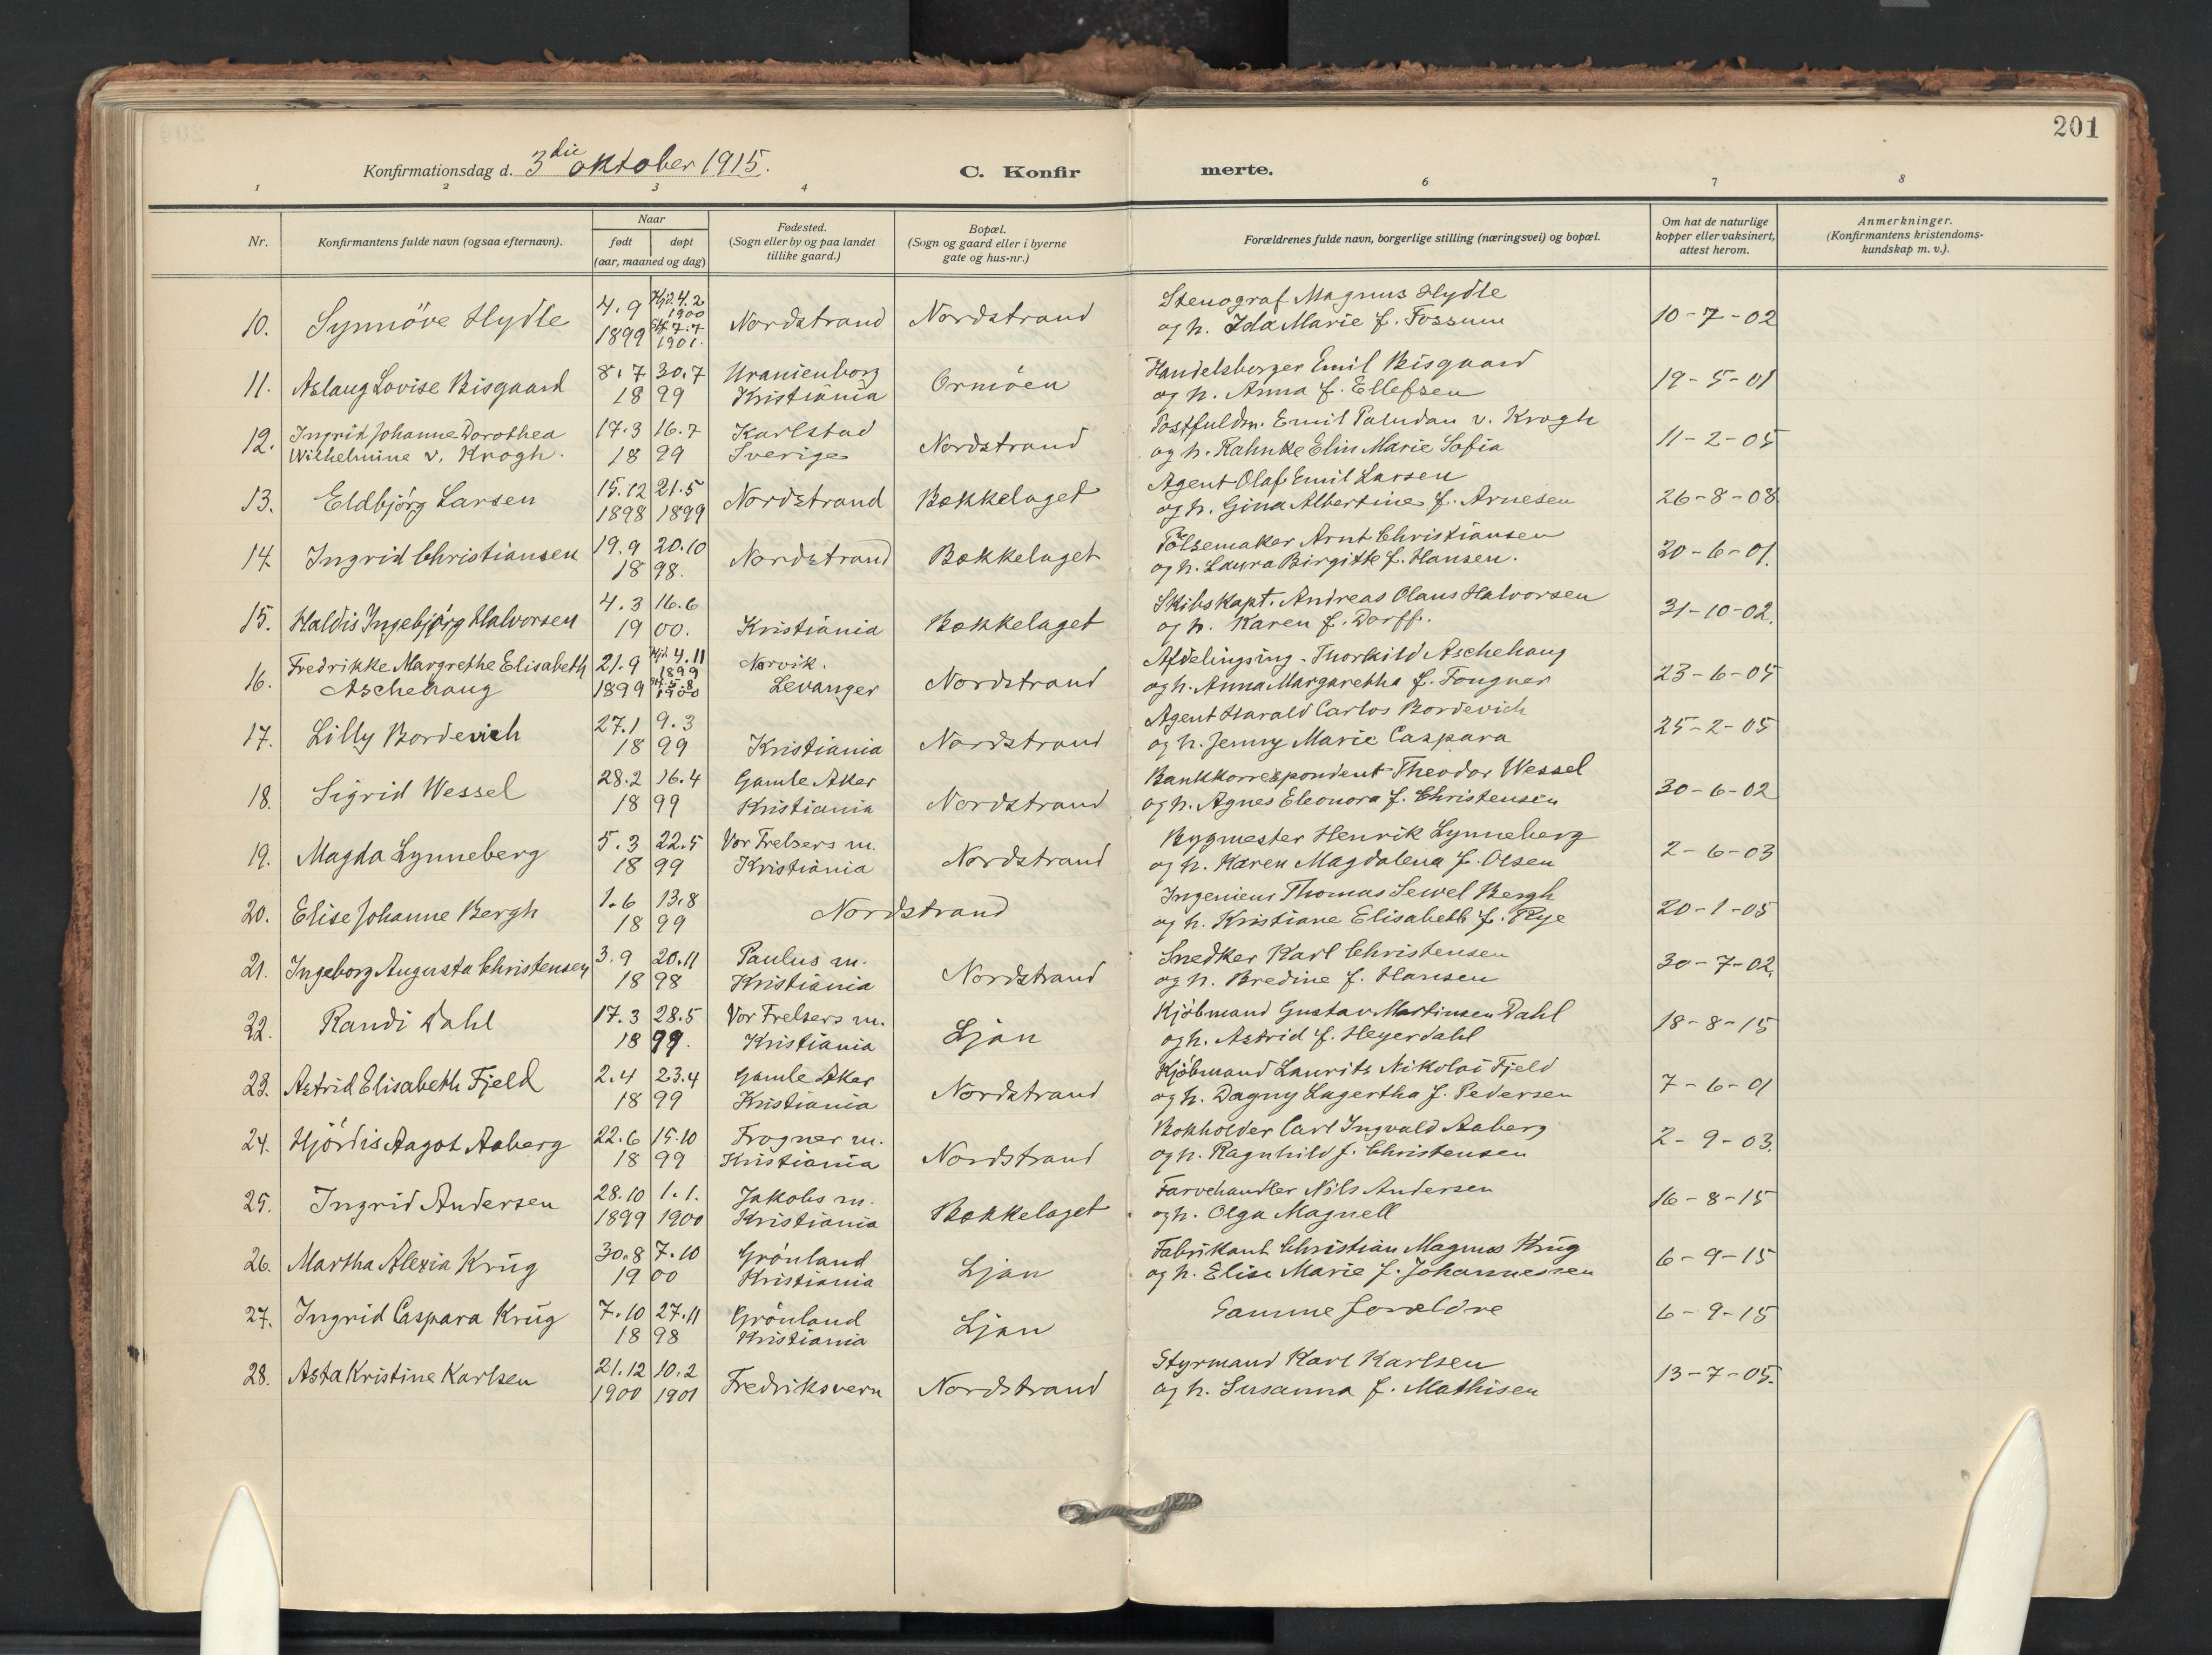 201
Konfirmationsdag d. 3die oktober 1915.
C. Konfirmerte.
1 2 3 4 6 7 8
Nr.
Konfirmantens fulde navn (ogsaa efternavn).
Naar
født døpt
(aar, maaned og dag)
Fødested.
(Sogn eller by og paa landet
tillike gaard.)
Bopæl.
(Sogn og gaard eller i byerne
gate og hus-nr.)
Forældrenes fulde navn, borgerlige stilling (næringsvei) og bopæl.
Om hat de naturlige
kopper eller vaksinert,
attest herom.
Anmerkninger.
(Konfirmantens kristendoms-
kundskap m. v.).
10. Synnöve Hydle 4.9 1899 Hjd. 4.2 1900 7.7 1901. Nordstrand Nordstrand
Stenograf Magnus Hydle
og h. Ida Marie f. Fossum 10-7-02
11. Aslaug Lovise Bisgaard 8.7 30.7 1899 Uranienborg Kristiania Ormöen
Handelsborger Emil Bisgaard
og h. Anna f. Ellefsen 19-5-01
12. Ingrid Johanne Dorothea
Wilhelmine v. Krogh. 17.3 16.7 1899 Karlstad Sverige Nordstrand
Postfuldm. Emil Paludan v. Krogh
og h. Rahnke Elin Marie Sofia 11-2-05
13. Eldbjörg Larsen 15.12 1898 21.5 1899 Nordstrand Bækkelaget
Agent Olaf Emil Larsen
og h. Gina Albertine f. Arnesen 26-8-08
14. Ingrid Christiansen 19.9 20.10 1898. Nordstrand Bækkelaget
Pölsemaker Arnt Christiansen
og h. Laura Birgitte f. Hansen. 20-6-01.
15. Haldis Ingebjörg Halvorsen 4.3 16.6 1900. Kristiania Bækkelaget
Skibskapt. Andreas Olaus Halvorsen
og h. Karen f. Dorff. 31-10-02.
16. Fredrikke Margrethe Elisabeth
Aschehoug 21.9 1899 Hjd. 4.11 1899 5.8 1900 Narvik. Levanger Nordstrand
Afdelingsing. Thorkild Aschehoug
og h. Anna Margaretha f. Fougner 23-6-05
17. Lilly Bordevich 27.1 9.3 1899 Kristiania Nordstrand
Agent Harald Carlos Bordevich
og h. Jenny Marie Caspara 25-2-05
18. Sigrid Wessel 28.2 16.4 1899 Gamle Aker Kristiania Nordstrand
Bankkorrespondent Theodor Wessel
og h. Agnes Eleonora f. Christensen 30-6-02
19. Magda Lynneberg 5.3 22.5 1899 Vor Frelsers m. Kristiania Nordstrand
Bygmester Henrik Lynneberg
og h. Karen Magdalena f. Olsen 2-6-03
20. Elise Johanne Bergh 1.6 13.8 1899 Nordstrand
Ingenieur Thomas Sewel Bergh
og h. Kristiane Elisabeth f. Rye 20-1-05
21. Ingeborg Augusta Christensen 3.9 20.11 1898 Paulus m. Kristiania Nordstrand
Snedker Karl Christensen
og h. Bredine f. Hansen 30-7-02.
22. Randi Dahl 17.3 28.5 1899. Vor Frelsers m. Kristiania Ljan
Kjöbmand Gustav Martinsen Dahl
og h. Astrid f. Heyerdahl 18-8-15
23. Astrid Elisabeth Fjeld 2.4 23.4 1899 Gamle Aker Kristiania Nordstrand
Kjöbmand Laurits Nikolai Fjeld
og h. Dagny Lagertha f. Pedersen 7-6-01
24. Hjördis Aagot Aaberg 22.6 15.10 1899 Frogner m. Kristiania Nordstrand
Bokholder Carl Ingvald Aaberg
og h. Ragnhild f. Christensen 2-9-03.
25. Ingrid Andersen 28.10 1899 1.1. 1900 Jakobs m. Kristiania Bækkelaget
Farvehandler Nils Andersen
og h. Olga Magnell 16-8-15
26. Martha Alexia Krüg 30.8 7.10 1900 Grönland Kristiania Ljan
Fabrikant Christian Magnus Krüg
og h. Elise Marie f. Johannessen 6-9-15
27. Ingrid Caspara Krüg 7.10 27.11 1898 Grönland Kristiania Ljan
Samme forældre 6-9-15
28. Asta Kristine Karlsen 21.12 1900 10.2 1901 Fredriksvern Nordstrand
Styrmand Karl Karlsen
og h. Susanna f. Mathisen 13-7-05.